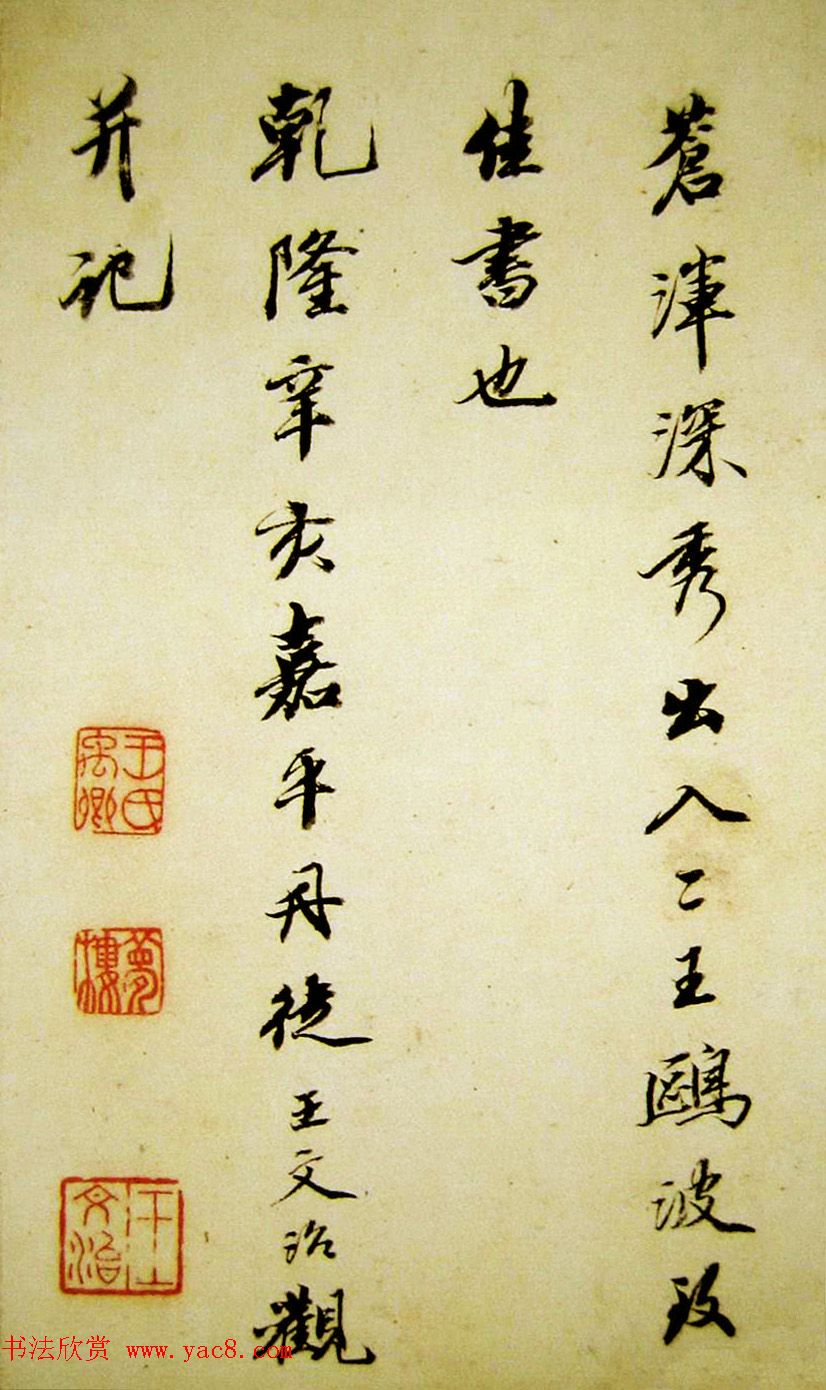 蒼渾深秀出入二王鷗波致
佳書也
乾隆辛亥嘉平丹徒王文治觀
并記
王氏禹卿
夢樓
文治
书法欣赏 www.yac8.com